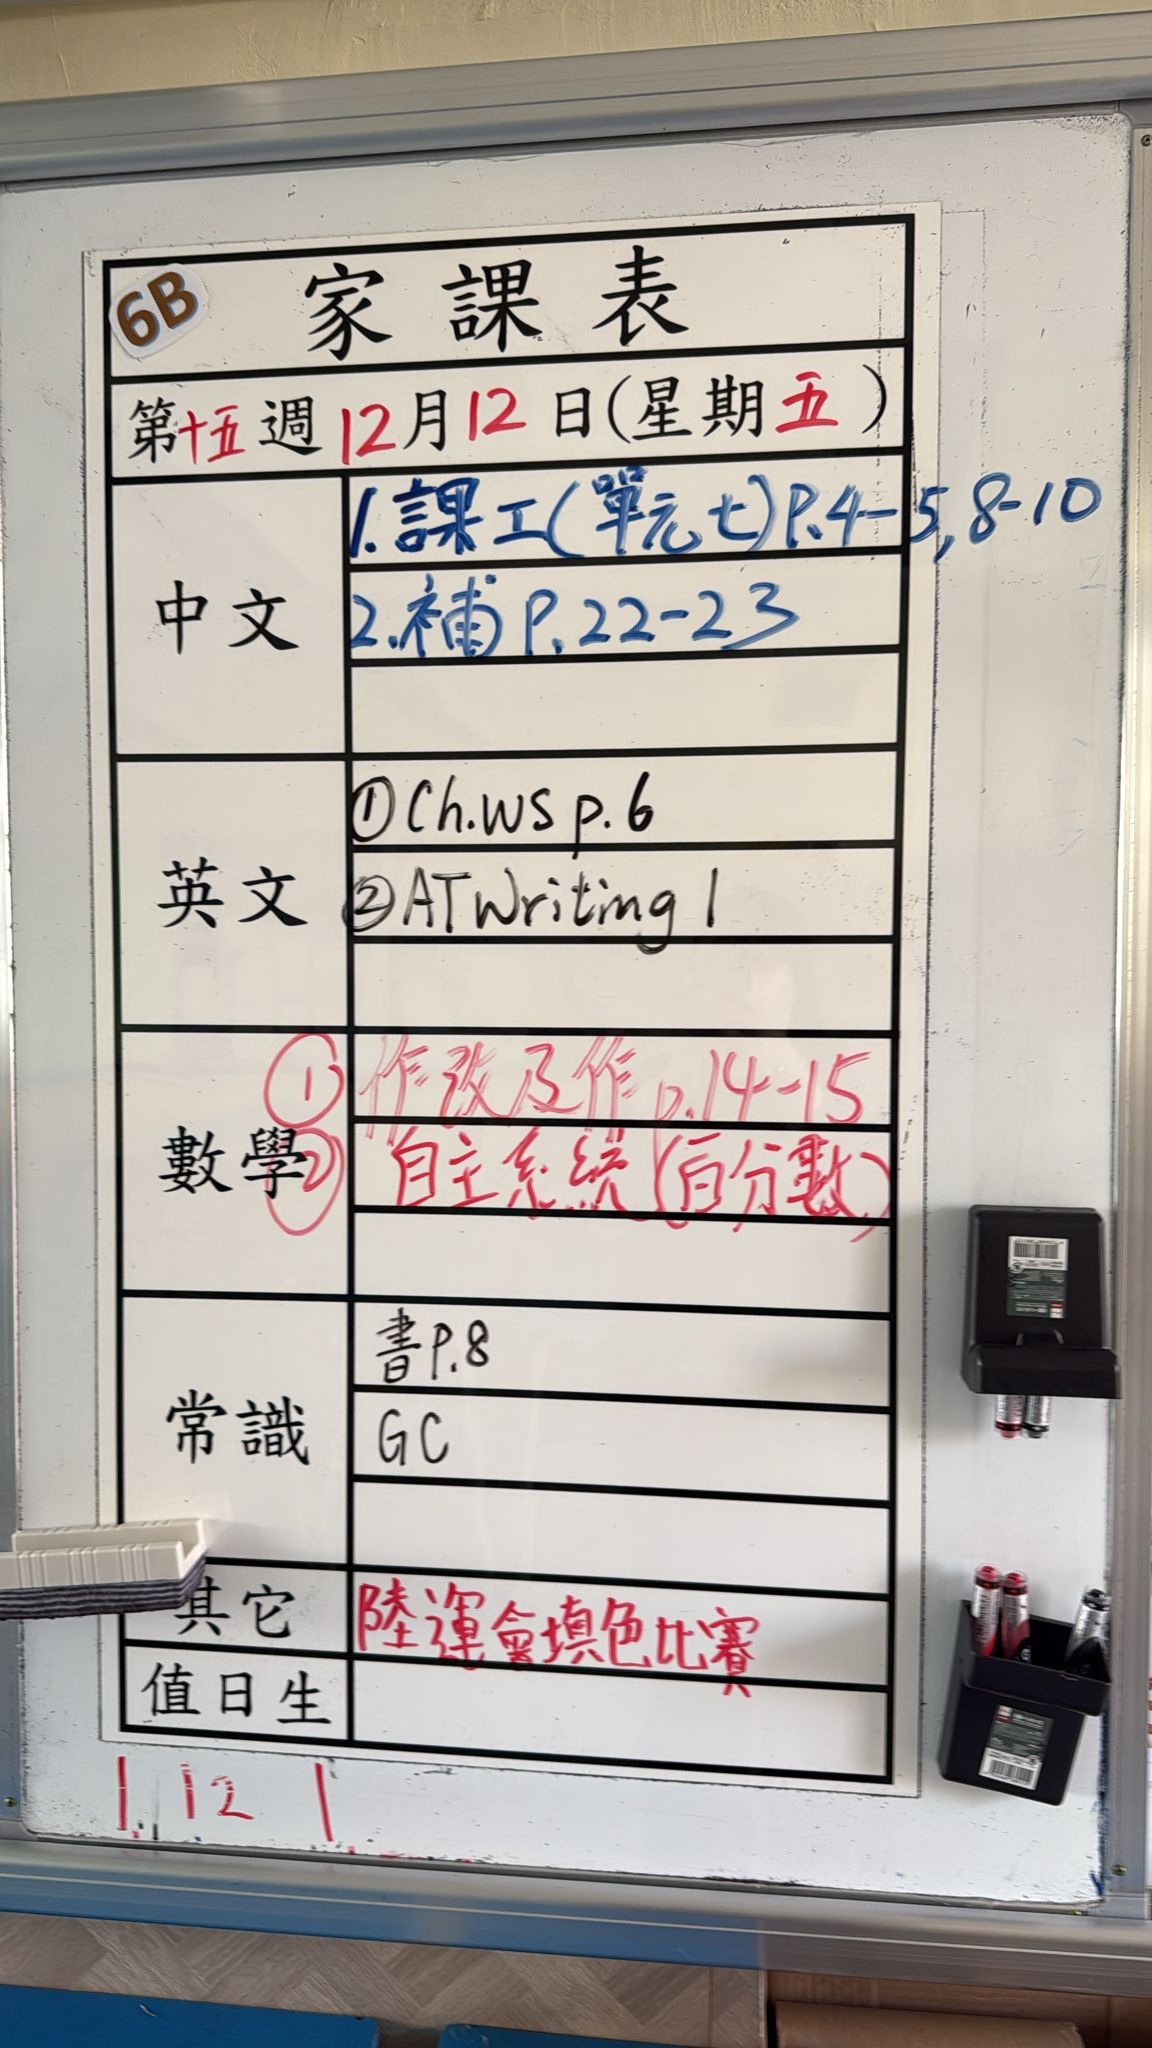 6B 家課表
第十五週12月12日(星期五)
中文
1.課工(單元七)P.4-5,8-10
2.補P.22-23
英文
①Ch.WS p.6
②AT Writing 1
數學
① 作改及作p.14-15
② 自主系統(百分數)
常識
書P.8
GC
其它
陸運會填色比賽
值日生
1 12 1